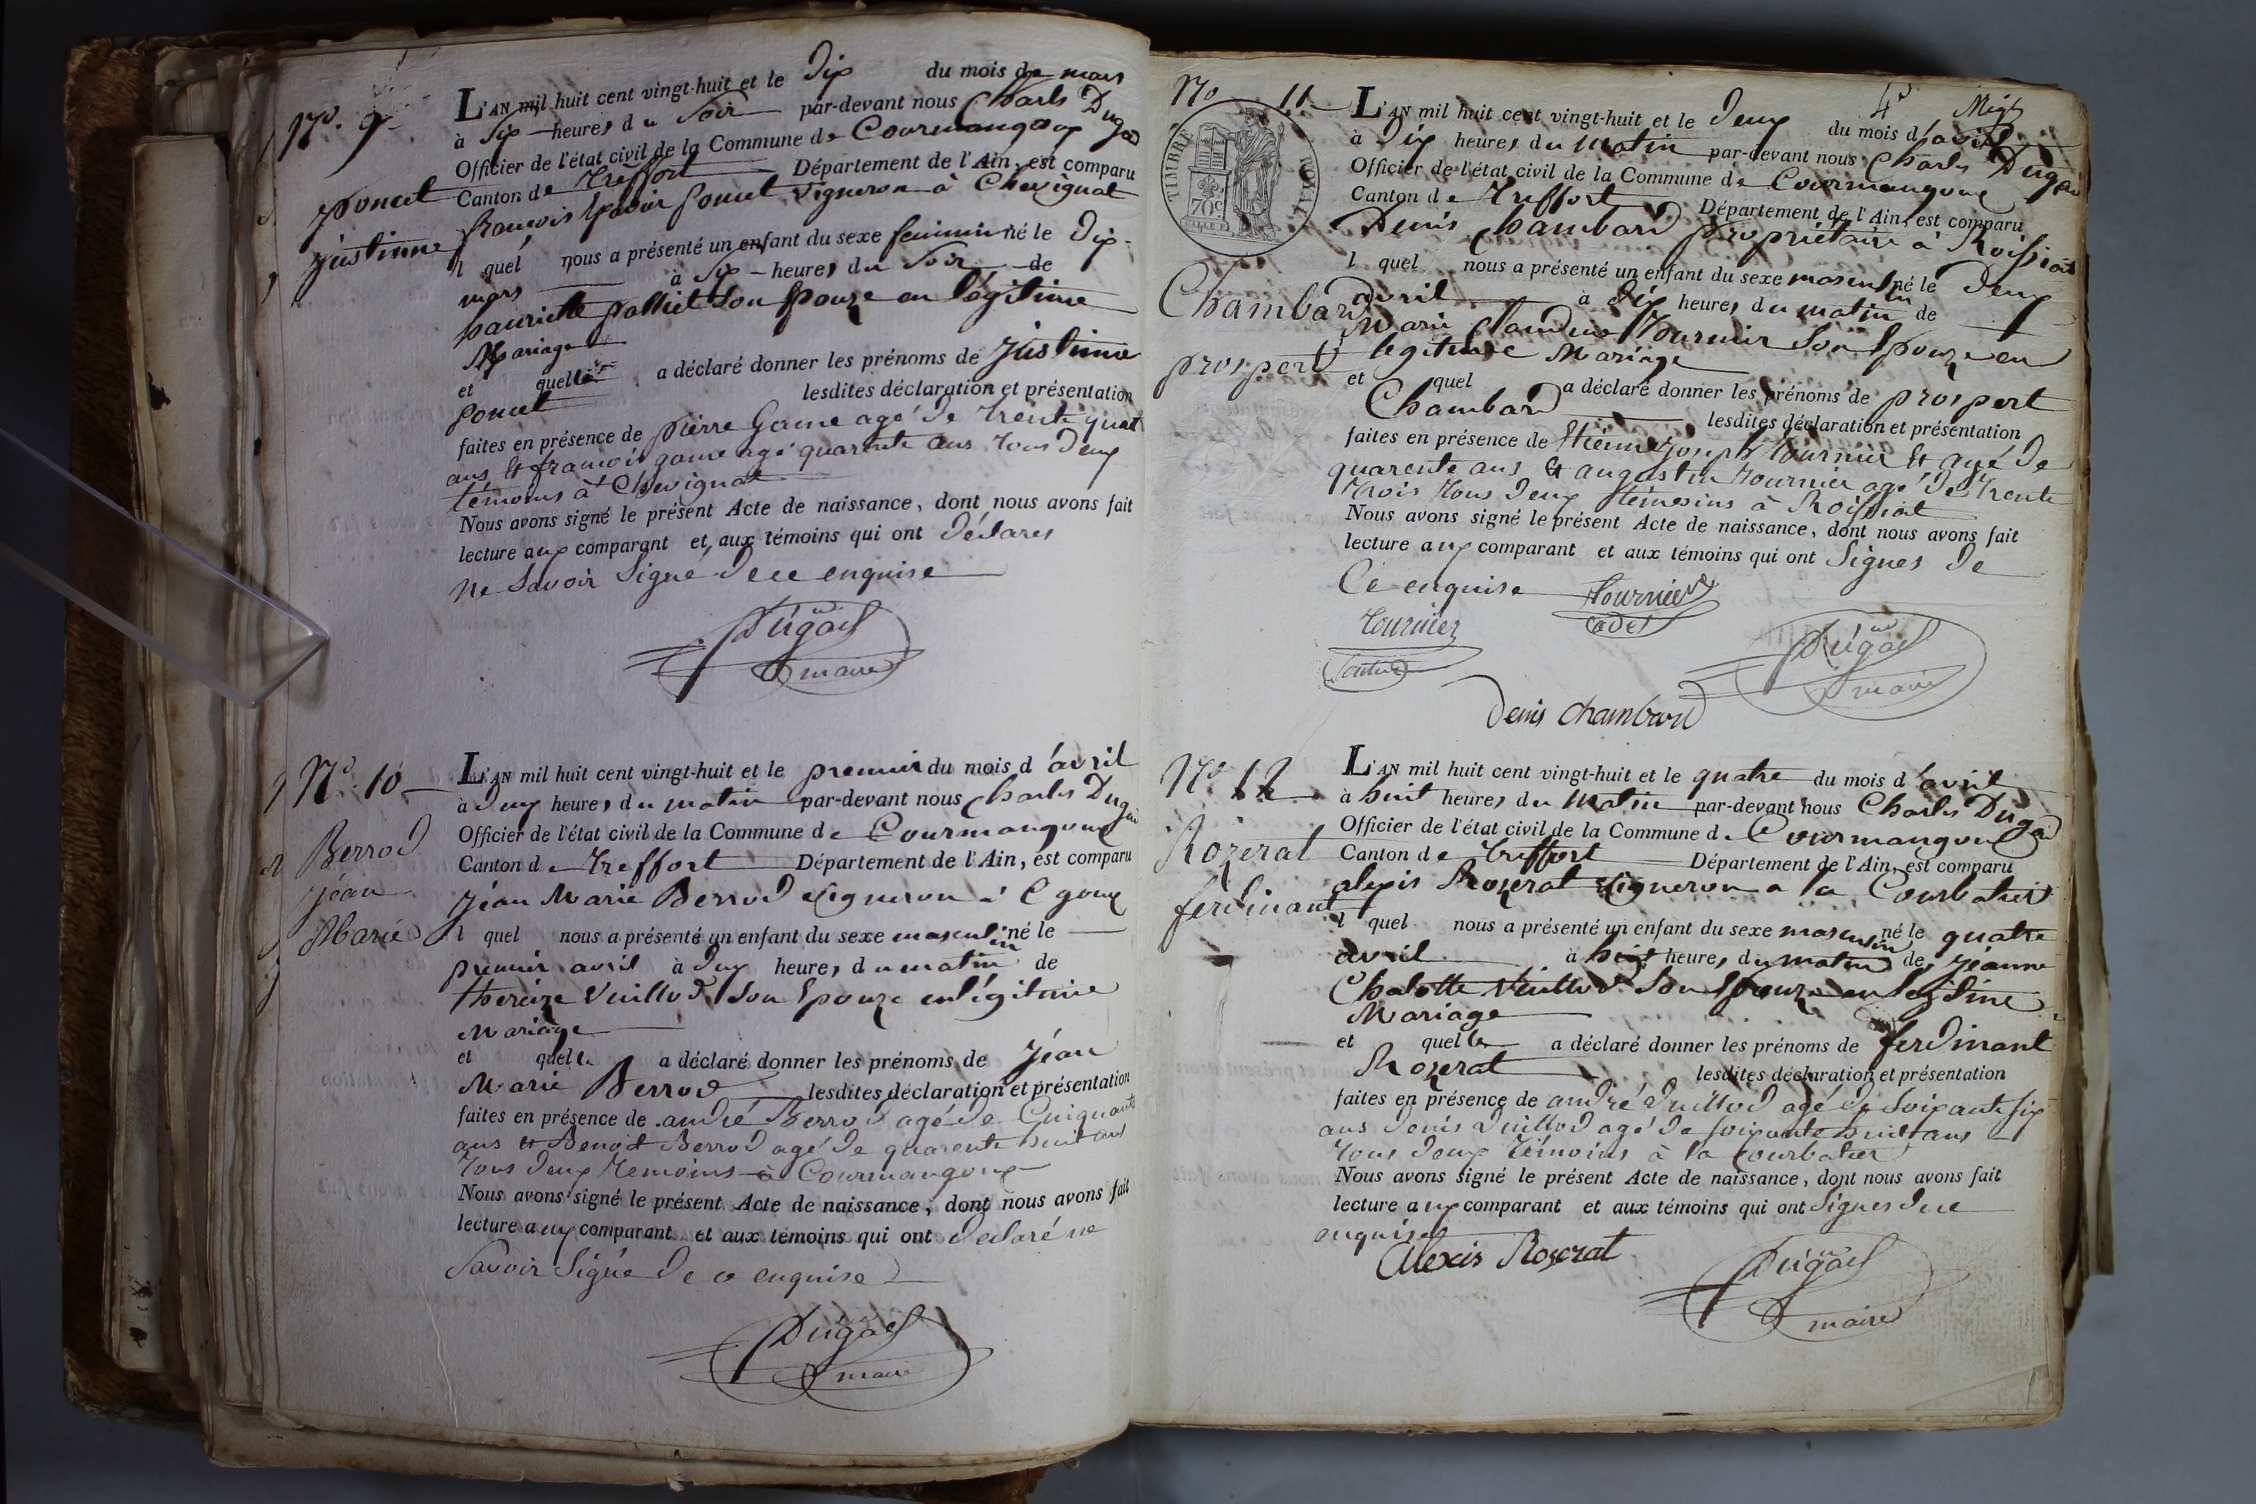 No. 9
poncet
justinne
L'AN mil huit cent vingt-huit et le dix du mois de mars
à six heures du soir par-devant nous Charls Dugad
Officier de l'état civil de la Commune de Courmangoux
Canton de treffort Département de l'Ain, est comparu
françois poncet vigneron à Chevignat
l quel nous a présenté un enfant du sexe feminin né le dix
mars à six heures du soir de
hauriette son Epouze en légitime
Mariage
et quelle a déclaré donner les prénoms de justinne
poncet lesdites déclaration et présentation
faites en présence de pierre Game agé de trente quat
ans Et françois game agé quarante ans tous deux
témoins à Chevignat
Nous avons signé le présent Acte de naissance, dont nous avons fait
lecture aux comparant et aux témoins qui ont déclares
ne Savoir Signé de ce enquise
Dugad
maire
No. 10
Berrod
jéan
Marie
L'AN mil huit cent vingt-huit et le premier du mois d'avril
à deux heures du matin par-devant nous Charls Dugad
Officier de l'état civil de la Commune de Courmangoux
Canton de treffort Département de l'Ain, est comparu
jéan Marie Berrod vigneron à
l quel nous a présenté un enfant du sexe masculin né le
premier avril à deux heures du matin de
thereize Vuillod son Epouze en légitime
Mariage
et quelle a déclaré donner les prénoms de jéan
Marie Berrod lesdites déclaration et présentation
faites en présence de andré Berrod agé de Cuiquante
ans et Benoit Berrod agé de quarente huit ans
tous deux temoins à Courmangoux
Nous avons signé le présent Acte de naissance, dont nous avons fait
lecture aux comparant et aux témoins qui ont declaré ne
Savoir Signé de ce enquise
Dugad
maire
4e
No 11
TIMBRE ROYAL
70c
Chambard
prospert
L'AN mil huit cent vingt-huit et le deux du mois d'avril
à dix heures du matin par-devant nous Charls Dugad
Officier de l'état civil de la Commune de Courmangoux
Canton de treffort Département de l'Ain, est comparu
Denis Chambard propriétaire à Roissiat
l quel nous a présenté un enfant du sexe masculin né le deux
avril à dix heures du matin de
Marie Claudine tournier son Epouze en
legitime Mariage
et quel a déclaré donner les prénoms de prospert
Chambard lesdites déclaration et présentation
faites en présence de Etienne joseph tournier Et agé de
quarente ans Et augustin tournier agé de trente
trois tous deux témoins à Roissiat
Nous avons signé le présent Acte de naissance, dont nous avons fait
lecture aux comparant et aux témoins qui ont Signes de
Ce enquise
tournier
Cadet
tournier
Dugad
maire
Denis Chambard
No 12
Rozerat
ferdinant
L'AN mil huit cent vingt-huit et le quatre du mois d'avril
à huit heures du Matin par-devant nous Charls Dugad
Officier de l'état civil de la Commune de Courmangoux
Canton de treffort Département de l'Ain, est comparu
alexis Rozerat vigneron a la Courbature
l quel nous a présenté un enfant du sexe masculin né le quatre
avril à huit heures du matin de jéanne
Chalotte Vuillod Son Epouze en legitime
Mariage
et quelle a déclaré donner les prénoms de ferdinant
Rozerat lesdites déclaration et présentation
faites en présence de andré Vuillod agé de soixante six
ans denis Vuillod agé de soixante huit ans
tous deux témoins à la
Nous avons signé le présent Acte de naissance, dont nous avons fait
lecture aux comparant et aux témoins qui ont signes de ce
enquise
Alexis Rozerat
Dugad
maire